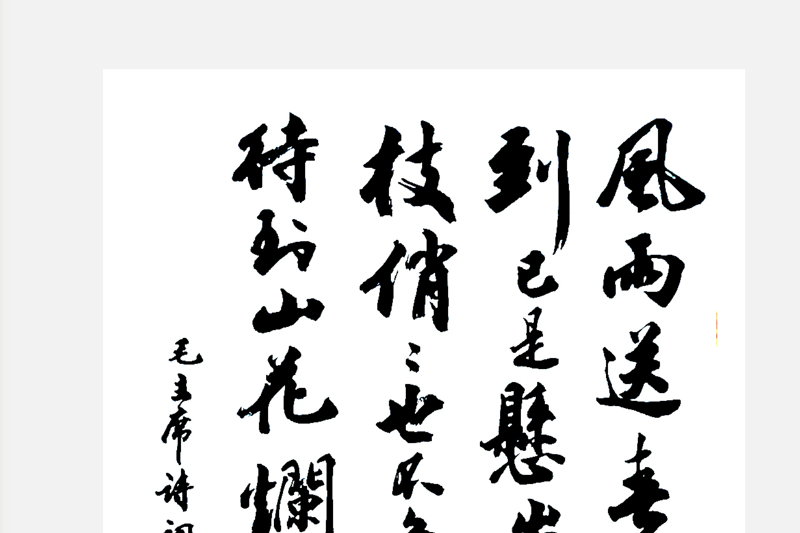 風雨送春
到已是懸
枝俏〻也不
待到山花爛
毛主席诗词